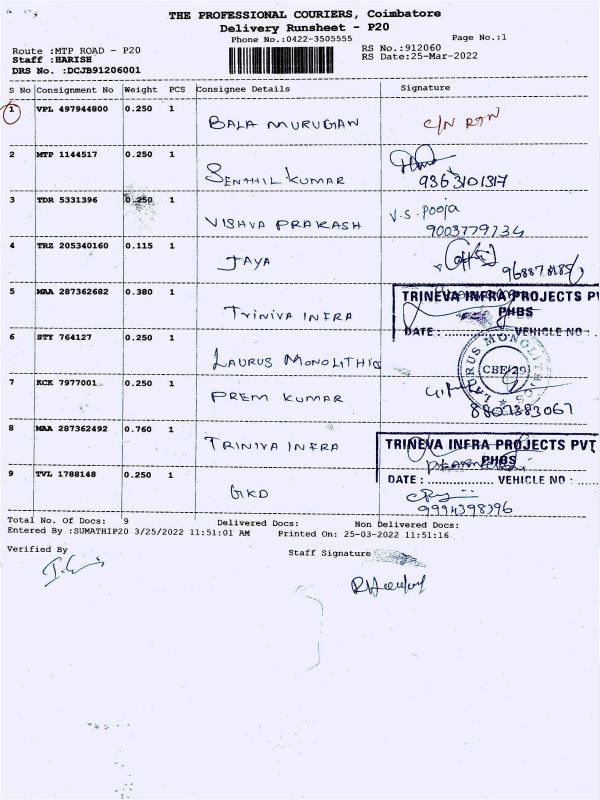 THE PROFESSIONAL COURIERS, Coimbatore
Delivery Runsheet - P20
Phone No.:0422-3505555
Page No.:1
Route :MTP ROAD - P20
RS No.:912060
Staff :HARISH
RS Date:25-Mar-2022
DRS No. :DCJB91206001
S No Consignment No Weight PCS Consignee Details Signature
1 VPL 497944800 0.250 1 BALA MURUGAN C/N RTN
2 MTP 1144517 0.250 1 SENTHIL KUMAR
9363101317
3 TDR 5331396 0.250 1 VISHVA PRAKASH V.S. Pooja
9003779734
4 TRZ 205340160 0.115 1 JAYA
5 MAA 287362682 0.380 1 TRINIVA INFRA
TRINEVA INFRA PROJECTS PV
PHBS
DATE : VEHICLE NO :
6 STY 764127 0.250 1 LAURUS MONOLITHIC
LAURUS MONOLITHICS
CBE/29
7 KCK 7977001 0.250 1 PREM KUMAR
8807383067
8 MAA 287362492 0.760 1 TRINIVA INFRA
TRINEVA INFRA PROJECTS PVT
PHBS
DATE : .................. VEHICLE NO : .....
9 TVL 1788148 0.250 1 GKD
9994398396
Total No. Of Docs: 9 Delivered Docs: Non Delivered Docs:
Entered By :SUMATHIP20 3/25/2022 11:51:01 AM Printed On: 25-03-2022 11:51:16
Verified By
Staff Signature